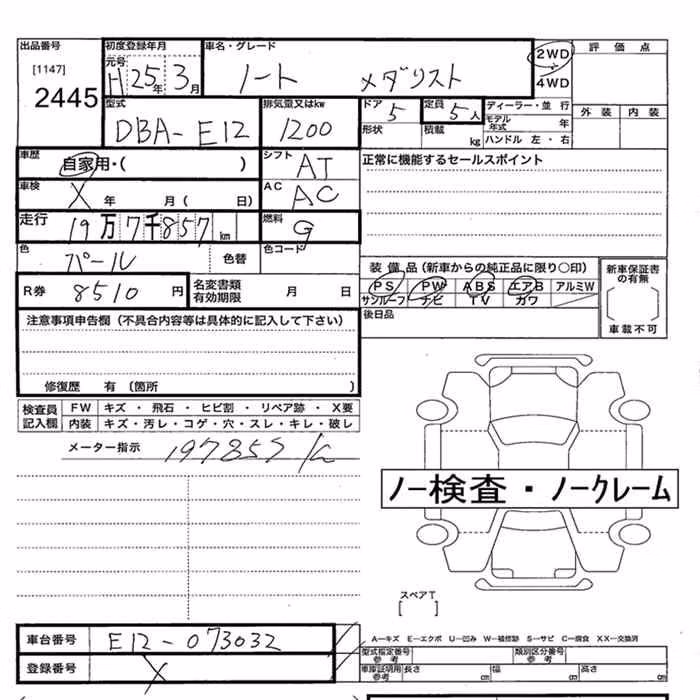 出品番号 初度登録年月 車名・グレード 2WD 評価点
[1147] 元号 H 25年 3月 ノート メダリスト 4WD
2445 外装 内装
型式 排気量又はkw ドア 5 定員 5人 ディーラー・並行
DBA-E12 1200 形状 積載 kg モデル年式 年
ハンドル 左・右
車歴 自家用・( ) シフト AT 正常に機能するセールスポイント
車検 X 年 月( 日) AC AC
走行 19万7千857km 燃料 G
色 パール 色替 色コード
装備品(新車からの純正品に限り〇印) 新車保証書の有無
PS PW ABS エアB アルミW
サンルーフ ナビ TV カワ
[ ]
車載不可
R券 8510円 名変書類有効期限 月 日 後日品
注意事項申告欄(不具合内容等は具体的に記入して下さい)
修復歴 有 (箇所 )
検査員記入欄 FW キズ・飛石・ヒビ割・リペア跡・X要
内装 キズ・汚レ・コゲ・穴・スレ・キレ・破レ
メーター指示 197857K
ノー検査・ノークレーム
スペアT
[ ]
車台番号 E12-073032
登録番号 X
A-キズ E-エクボ U-凹み W-補修跡 S-サビ C-腐食 XX-交換済
型式指定番号 参考 類別区分番号 参考
車庫証明用 参考 長さ cm 幅 cm 高さ cm